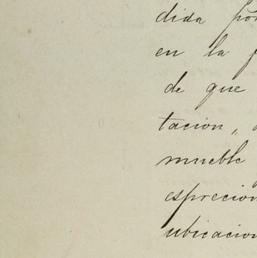 dida por
en la
de que
tacion,
mueble
esprecion
ubicacion